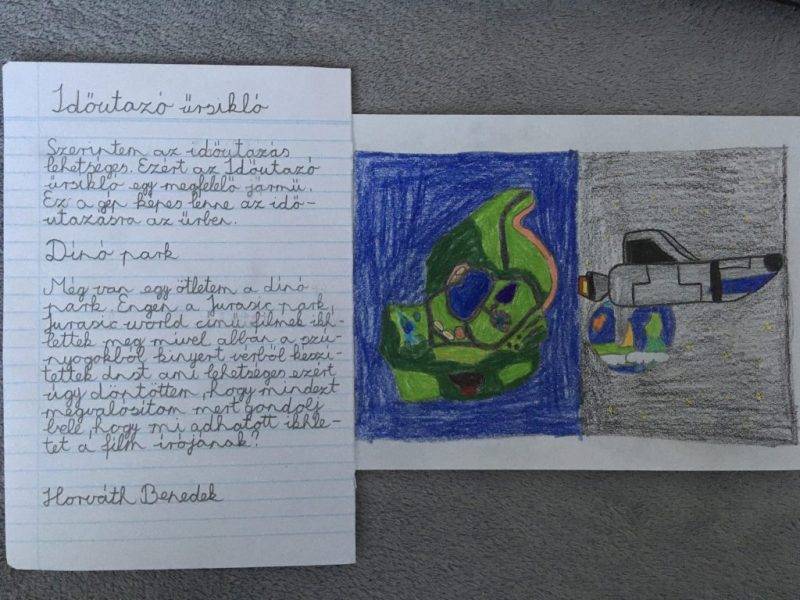 Időutazó űrsikló
Szerintem az időutazás
lehetséges. Ezért az Időutazó
űrsikló egy megfelelő jármű.
Ez a gép képes lenne az idő-
utazásra az űrben.
Dínó park
Még van egy ötletem a dínó
park. Engen a Jurasic park,
Jurasic world című filmek ihl-
lettek meg mivel abban a szú-
nyogokból kinyert vérből készí-
tettek dnst ami lehetséges ezért
úgy döntöttem, hogy mindezt
megvalósítom mert gondolj
bele, hogy mi adhatott ihle-
tet a film írójának?
Horváth Benedek